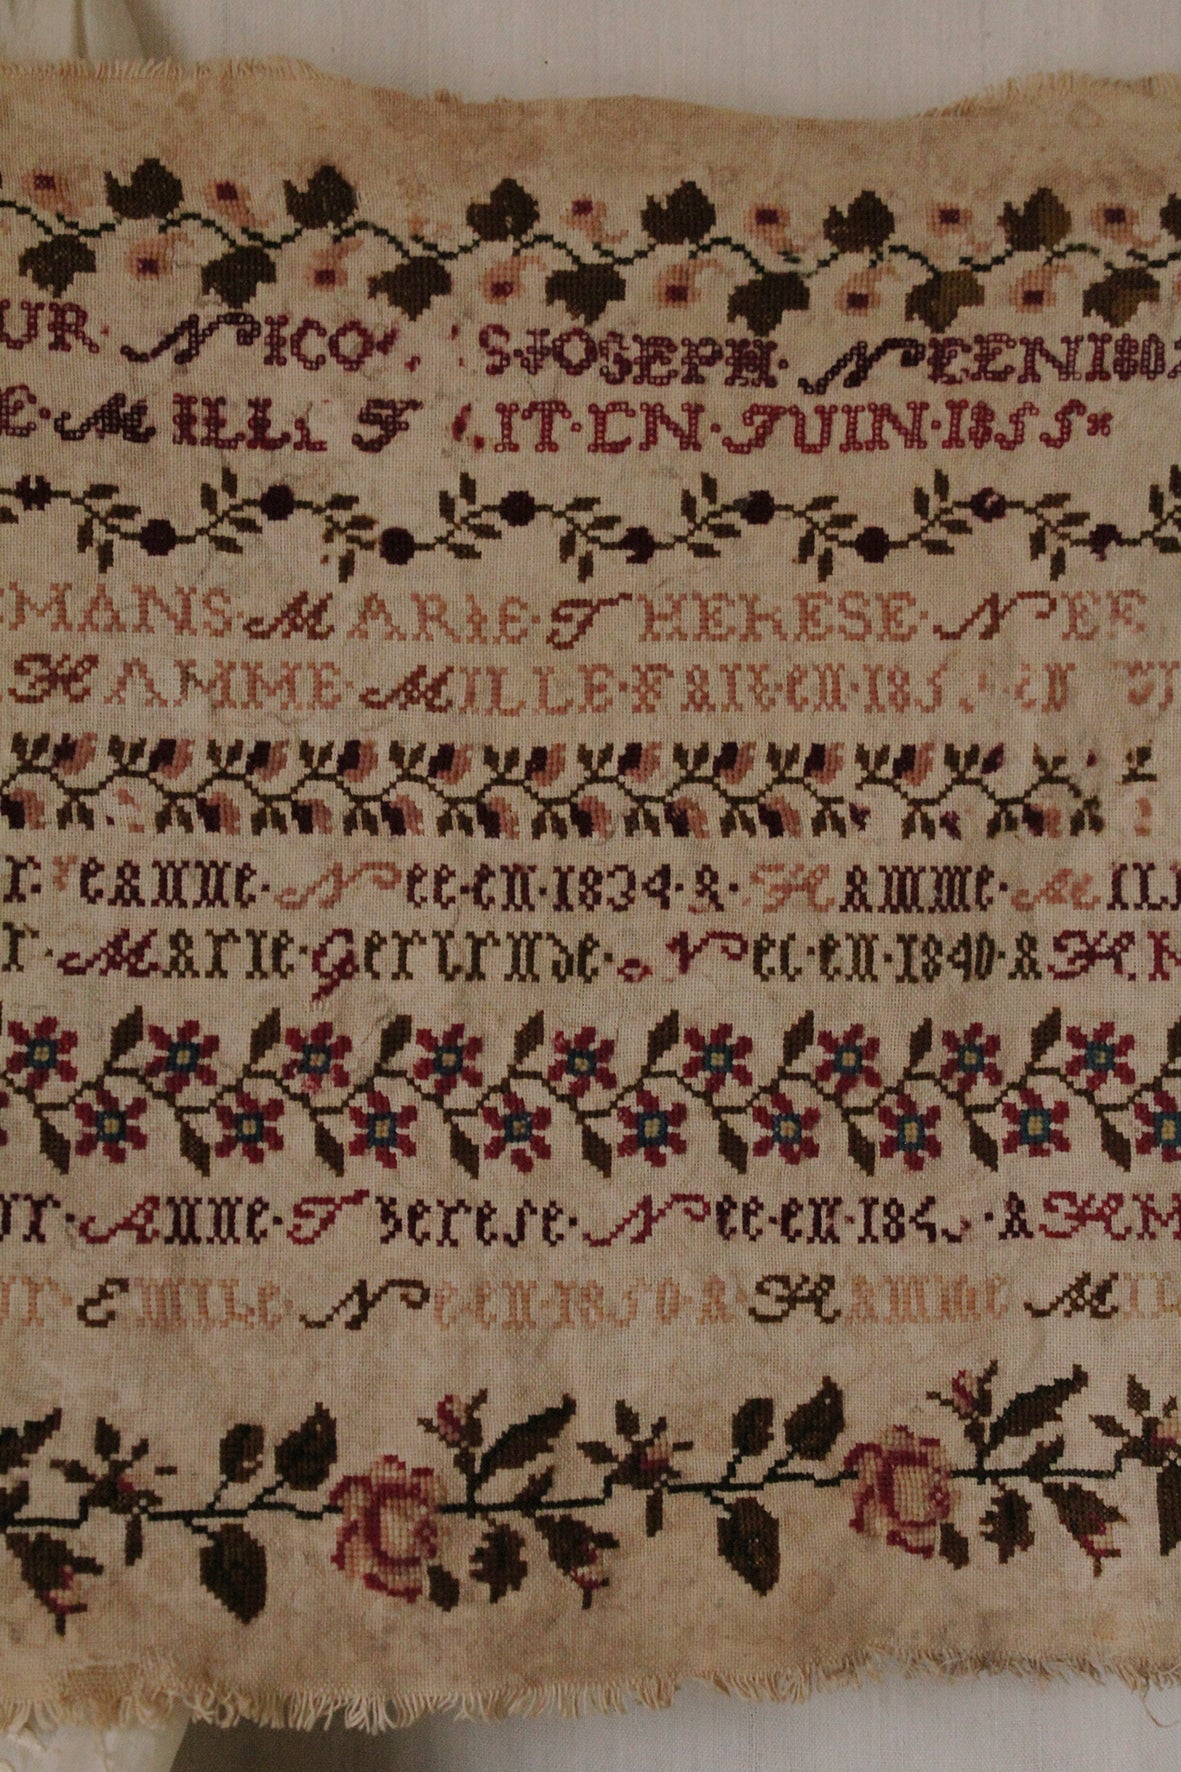 UR NICO S·JOSEPH· NEEN180
E·MILL FAIT·EN·JUIN·1855
MANS·MARIE·THERESE·NEE
HAMME·MILLE·FAIT·EN·185 EN JU
r· Jeanne·Nee·en·1834·A·Hamme·Mill
r·Marie·Gertrude· Nee·en·1840·A HM
ur·Anne·Therese·Nee·en·184 ·A HM
ur·Emile Neen·1850·A·Hamme Mil